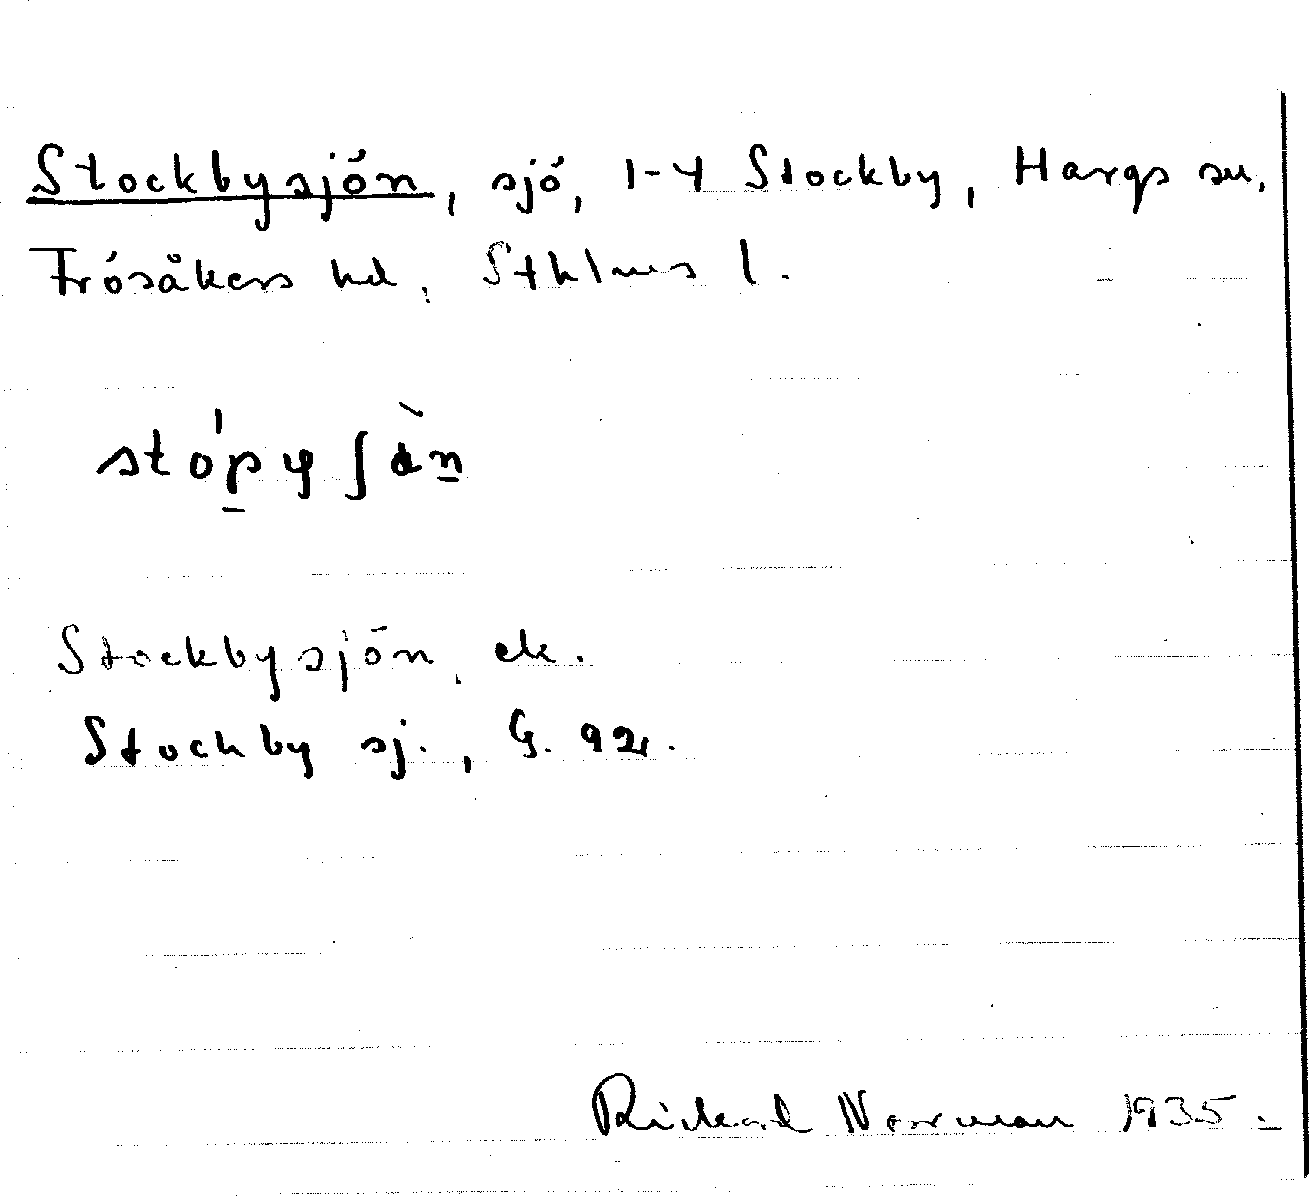 Stockbysjön, sjö, 1-4 Stockby, Hargs sn,
Frösåkers hd, Sthlms l.
Stockbysjön, ek.
Stockby sj., G. 92.
Rickard Norman 1935.